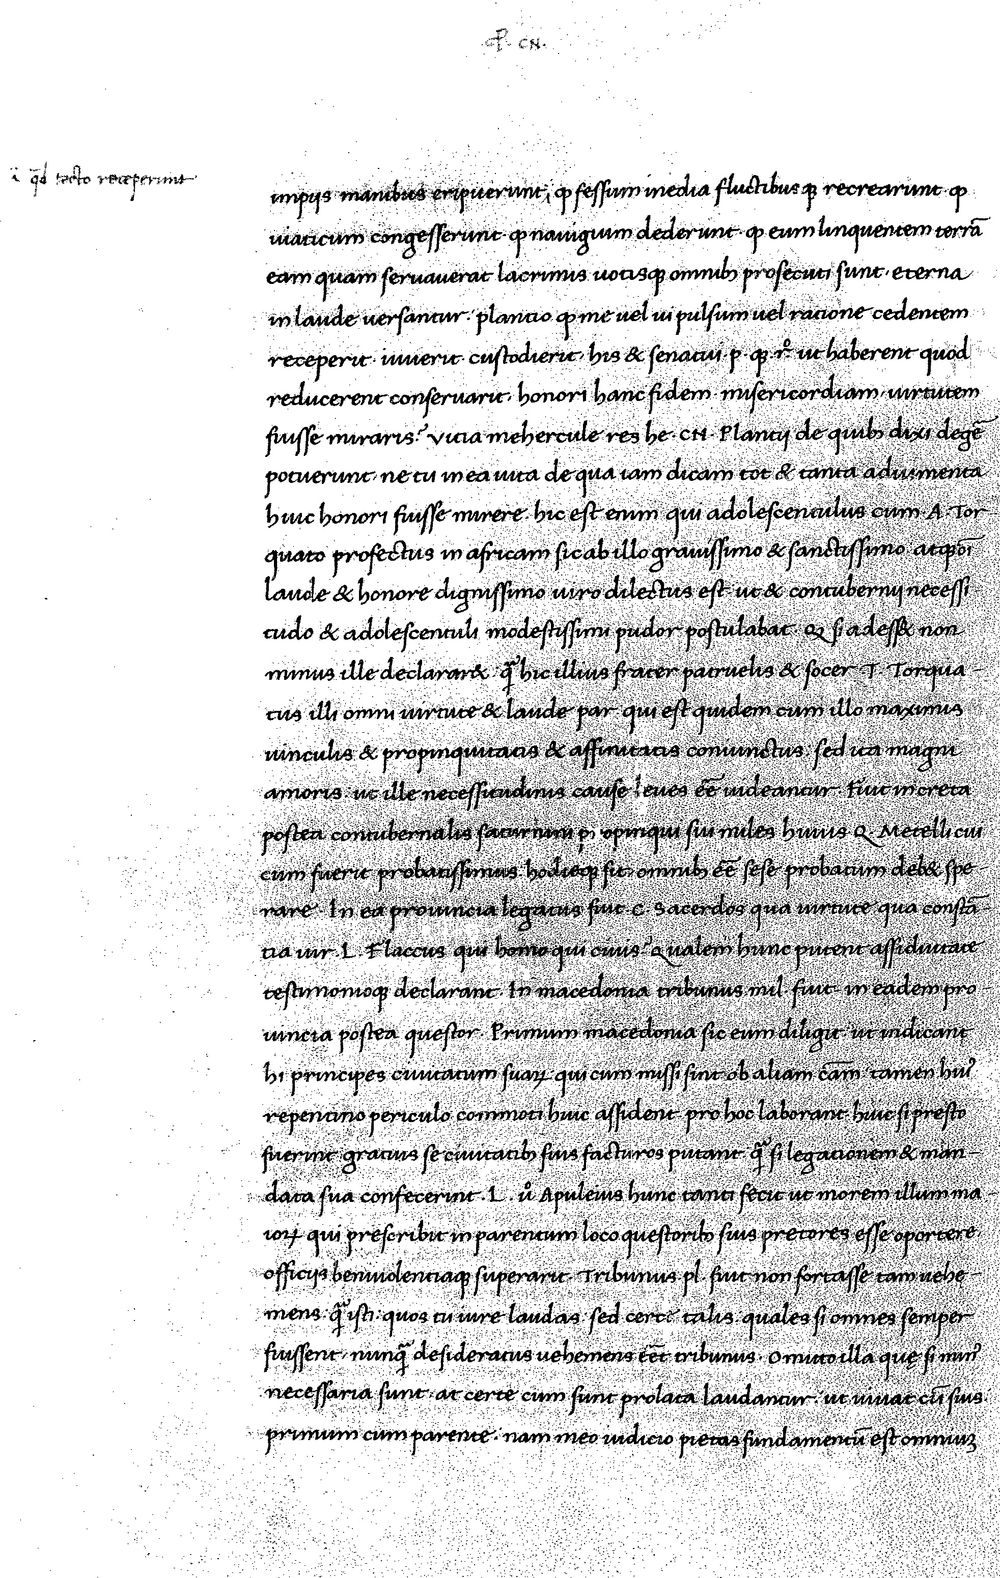 P. CN.
i qd tecto receperunt
impijs manibus eripuerunt, ꝙ fessum inedia fluctibusqꝫ recrearunt ꝙ
uiaticum congesserunt ꝙ nauigium dederunt ꝙ eum linquentem terrā
eam quam seruauerat lacrimis uotisqꝫ omnibꝫ prosecuti sunt· eterna
in laude uersantur· plancio ꝙ me uel ui pulsum uel ratione cedentem
receperit· iuuerit· custodierit· his & senatui· p· qꝫ· rº ut haberent quod
reducerent conseruarit· honori hanc fidem· misericordiam· uirtutem
fuisse miraris? Vitia mehercule res he· CN· Plancij de quibꝫ dixi degē
potuerunt· ne tu in ea uita de qua iam dicam tot & tanta adiumenta
huic honori fuisse mirere· hic est enim qui adolescentulus cum A· Tor
quato profectus in africam sic ab illo grauissimo & sanctissimo atqꝫ oī
laude & honore dignissimo uiro dilectus est ut & contubernij necessi
tudo & adolescentuli modestissimi pudor postulabat· Q si adess& non
minus ille declarar& q̃ hic illius frater patruelis & socer T· Torqua-
tus illi omni uirtute & laude par· qui est quidem cum illo maximis
uinculis & propinquitatis & affinitatis coniunctus sed ita magni
amoris ut ille necessitudinis cause leues eē uideantur· Fuit in creta
postea contubernalis saturnini propinqui sui miles huius Q· Metelli cui
cum fuerit probatissimus hodieqꝫ sit· omnibꝫ eē sese probatum deb& spe-
rare· In ea prouincia legatus fuit C· Sacerdos qua uirtute qua constā-
tia uir· L· Flaccus qui homo qui ciuis? Qualem hunc putent assiduitate
testimonioqꝫ declarant· In macedonia tribunus mil· fuit· in eadem pro-
uincia postea questor· Primum macedonia sic eum diligit· ut indicant
hi principes ciuitatum suaꝝ qui cum missi sint ob aliam cām· tamen huiꝰ
repentino periculo commoti huic assident· pro hoc laborant huic si presto
fuerint gratius se ciuitatibꝫ suis facturos putant· q̃ si legationem & man-
data sua confecerint· L· ů Apuleius hunc tanti fecit ut morem illum ma-
ioꝝ qui prescribit in parentum loco questoribꝫ suis pretores esse oportere
officijs beniuolentiaqꝫ superarit· Tribunus pl· fuit non fortasse tam uehe-
mens· q̃ isti· quos tu iure laudas· sed certe talis· quales si omnes semper
fuissent· nunq̃ desideratus uehemens eēt tribunus· Omitto illa quę si minꝰ
necessaria sunt· at certe cum sunt prolata laudantur· ut uiuat cū suis·
primum cum parente· nam meo iudicio pietas fundamentū est omniuꝫ